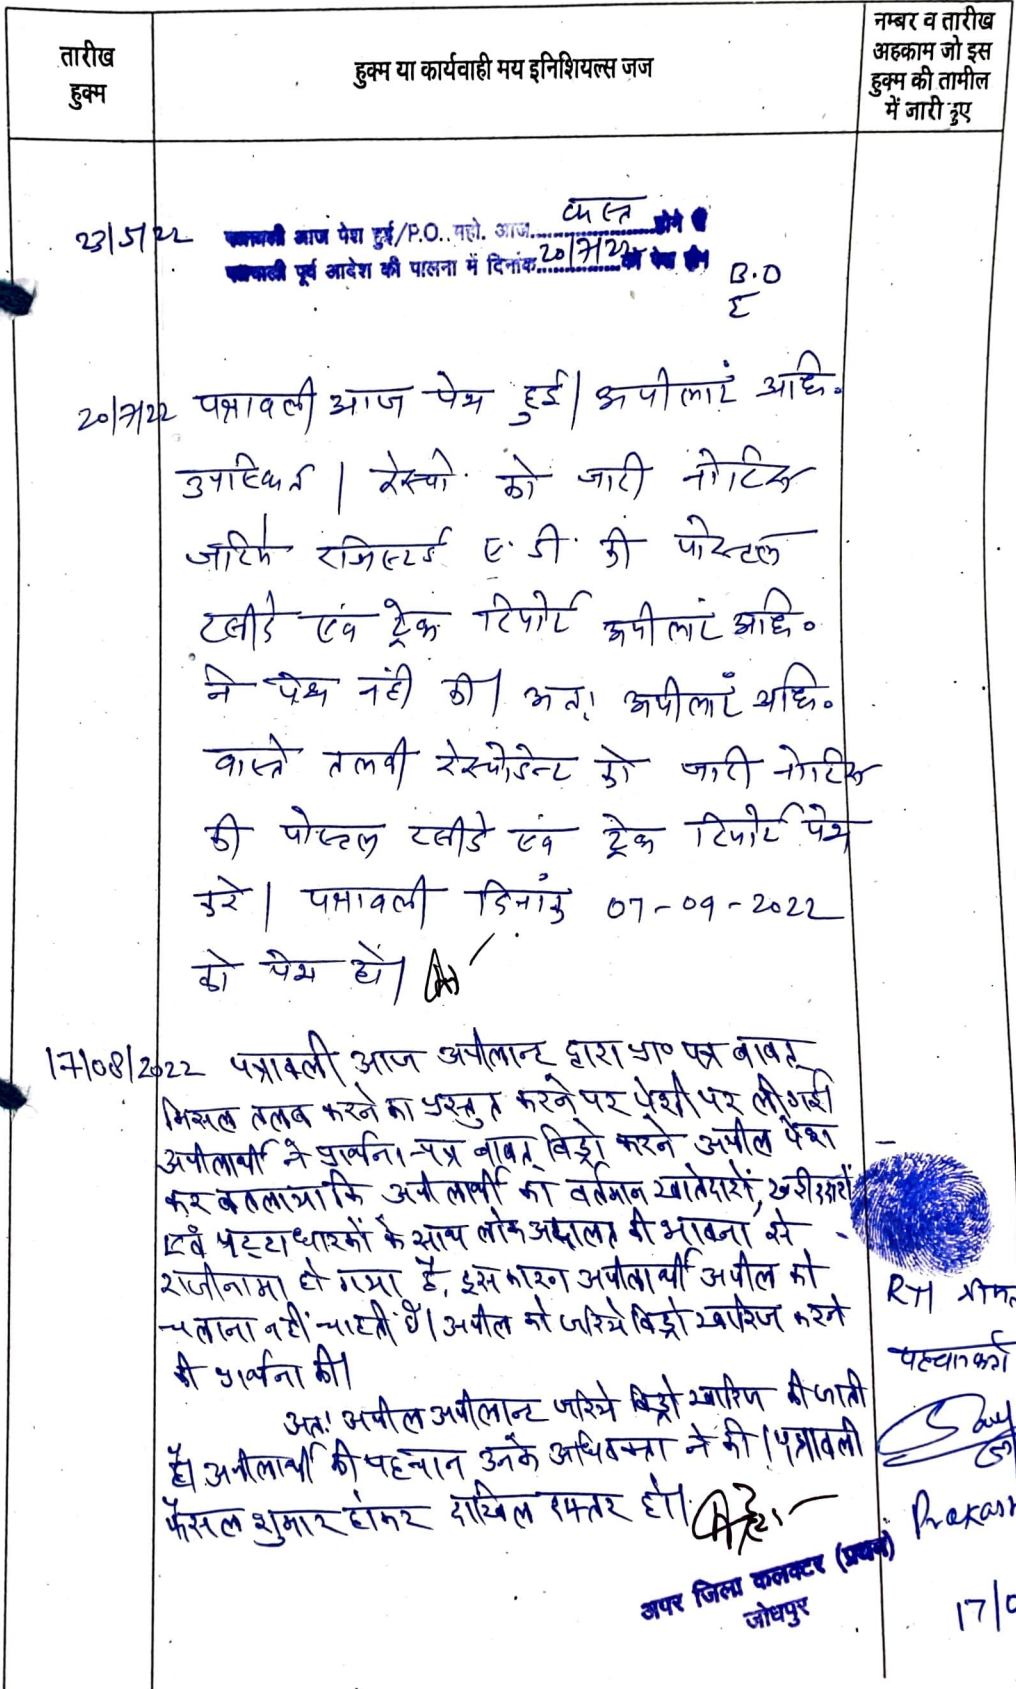 तारीख
हुक्म
हुक्म या कार्यवाही मय इनिशियल्स जज
नम्बर व तारीख
अहकाम जो इस
हुक्म की तामील
में जारी हुए
23/5/22
आज पेश हुई/P.O. महो. आज व्यस्त होने से
पत्रावली पूर्व आदेश की पालना में दिनांक 20/7/22 को पेश हो।
B.O
20/7/22 पत्रावली आज पेश हुई। अपीलांट अधि॰
उपस्थित। रेस्पो. को जारी नोटिस
जरिये रजिस्टर्ड ए.डी. की पोस्टल
रसीदे एवं ट्रेक रिपोर्ट अपीलांट अधि॰
ने पेश नंही की। अतः अपीलांट अधि॰
वास्ते तलबी रेस्पोडेन्ट को जारी नोटिस
की पोस्टल रसीदे एवं ट्रेक रिपोर्ट पेश
करे। पत्रावली दिनांक 07-09-2022
को पेश हो।
17/08/2022 पत्रावली आज अपीलान्ट द्वारा प्रा॰ पत्र बाबत्
मिसल तलब करने का प्रस्तुत करने पर पेशी पर ली गई
अपीलार्थी ने प्रार्थना-पत्र बाबत् विड्रो करने अपील पेश
कर बतलाया कि अपीलार्थी का वर्तमान खातेदारों, खरीददारों
एवं पट्टाधारकों के साथ लोक अदालत की भावना से
राजीनामा हो गया है, इस कारण अपीलार्थी अपील को
चलाना नहीं चाहती है। अपील को जरिये विड्रो खारिज करने
की प्रार्थना की।
अतः अपील अपीलान्ट जरिये विड्रो खारिज की जाती
है। अपीलार्थी की पहचान उनके अधिवक्ता ने की। पत्रावली
फैसल शुमार होकर दाखिल दफ्तर हो।
अपर जिला कलक्टर (प्रथम)
जोधपुर
RTI
पहचानकर्ता
Prakash
17/0